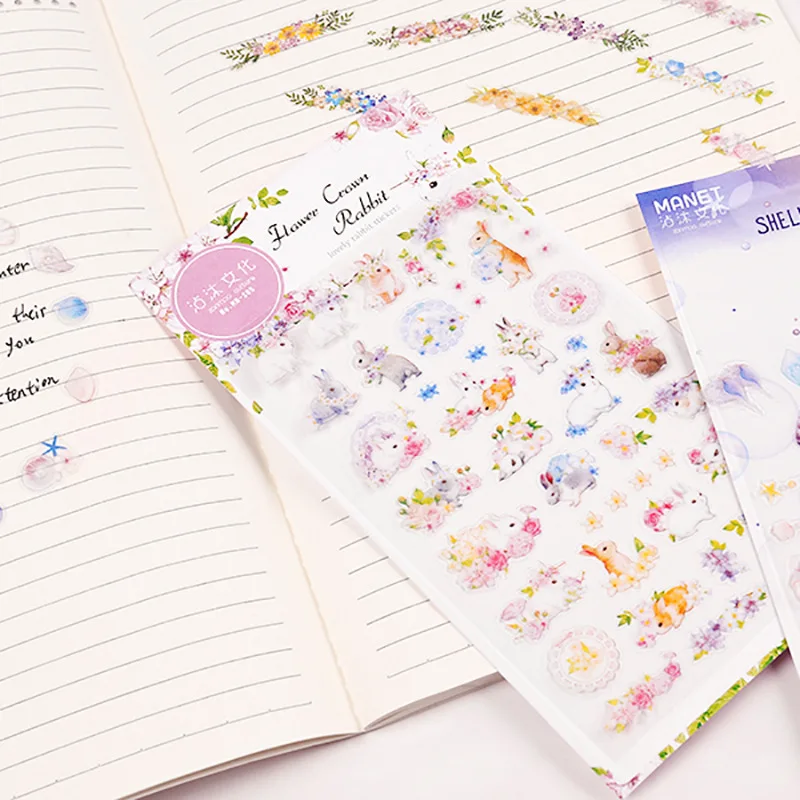 nter
their
you
ttention
Flower Crown
Rabbit
lovely rabbit stickers
沾沫文化
MANET
沾沫文化
SHELL